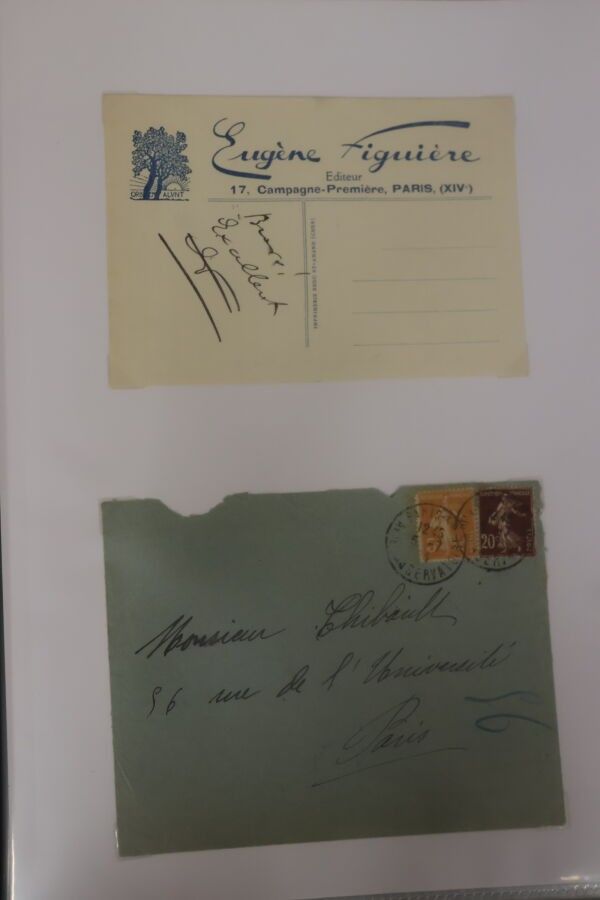 Eugène Figuière
Editeur
17, Campagne-Première, PARIS, (XIVᵉ)
ALVNT
Bravo!
Excellent
20
Monsieur Thibault
56 rue de l'Université
Paris